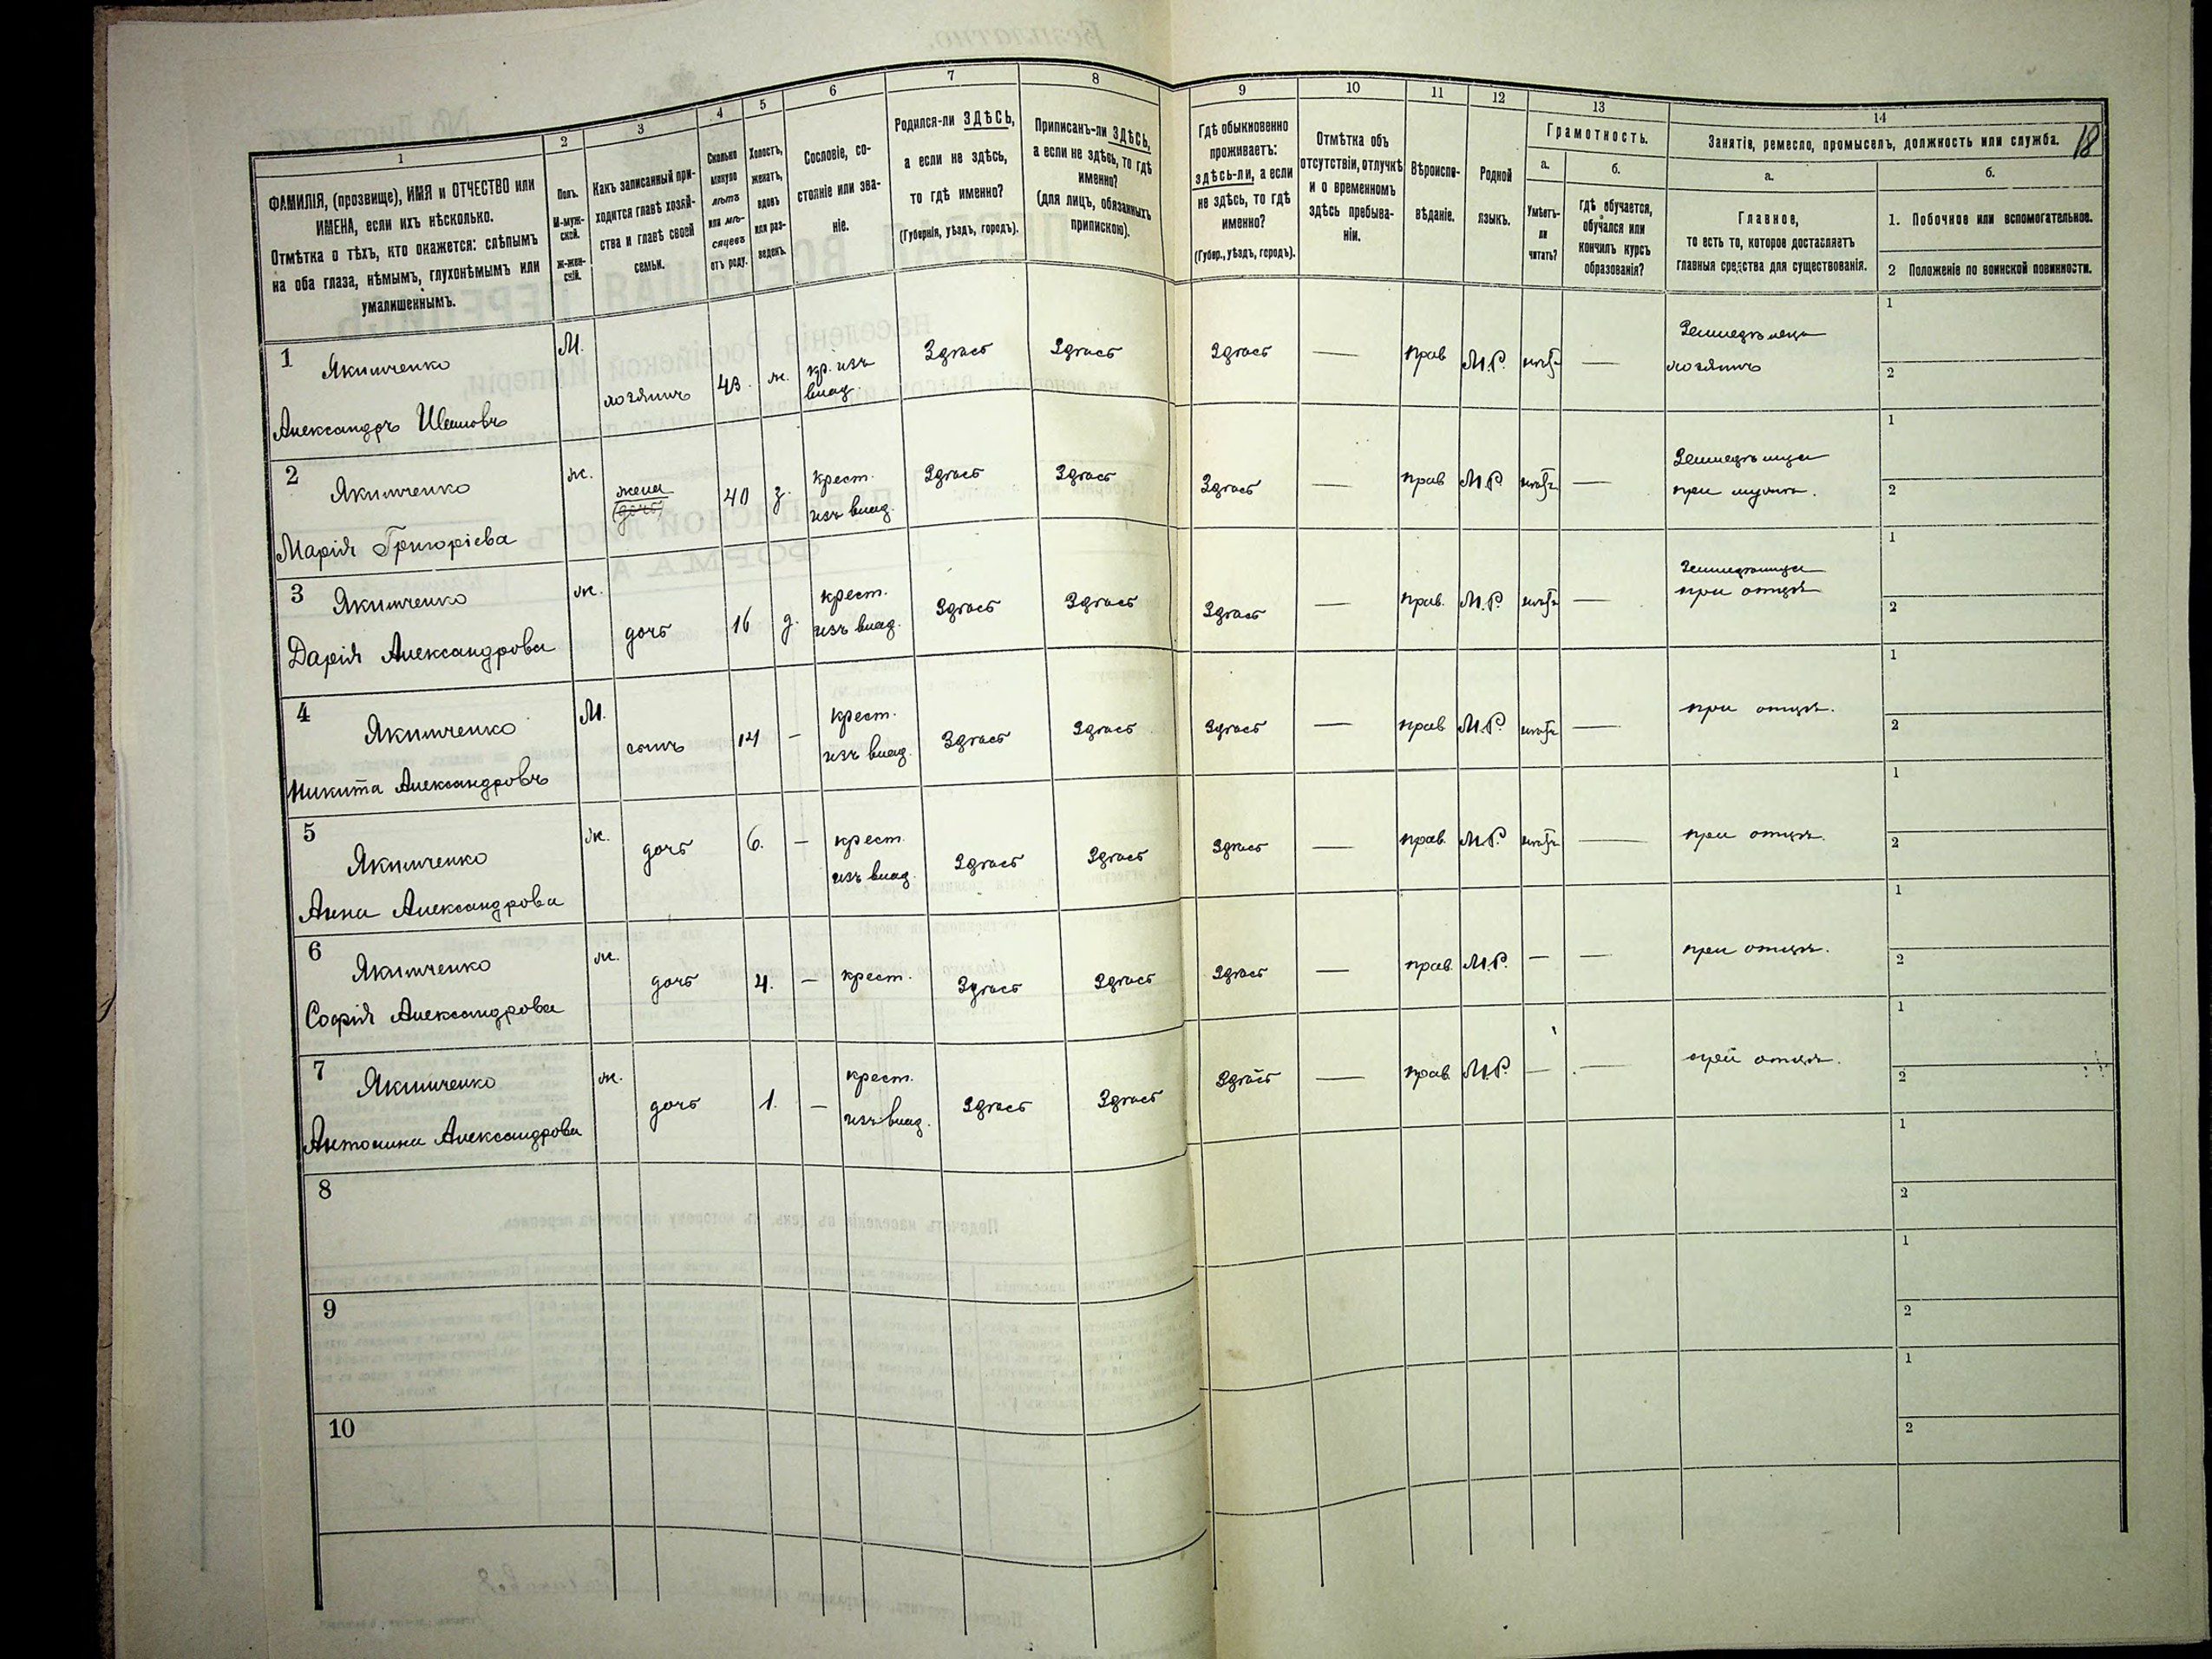 7
8
9
10
11
12
13
14
1
2
3
4
5
6
18
ФАМИЛІЯ, (прозвище), ИМЯ и ОТЧЕСТВО или
ИМЕНА, если ихъ нѣсколько.
Отмѣтка о тѣхъ, кто окажется: слѣпымъ
на оба глаза, нѣмымъ, глухонѣмымъ или
умалишеннымъ.
Полъ.
М-муж-
ской.
Ж-жен-
скій.
Какъ записанный при-
ходится главѣ хозяй-
ства и главѣ своей
семьи.
Сколько
минуло
лѣтъ
или мѣ-
сяцевъ
отъ роду.
Холостъ,
женатъ,
вдовъ
или раз-
веденъ.
Сословіе, со-
стояніе или зва-
ніе.
Родился-ли ЗДѢСЬ,
а если не здѣсь,
то гдѣ именно?
(Губернія, уѣздъ, городъ).
Приписанъ-ли ЗДѢСЬ,
а если не здѣсь, то гдѣ
именно?
(для лицъ, обязанныхъ
припискою).
Гдѣ обыкновенно
проживаетъ:
здѣсь-ли, а если
не здѣсь, то гдѣ
именно?
(Губер., уѣздъ, городъ).
Отмѣтка объ
отсутствіи, отлучкѣ
и о временномъ
здѣсь пребыва-
ніи.
Вѣроиспо-
вѣданіе.
Родной
языкъ.
Грамотность.
а.
б.
Умѣетъ-
ли
читать?
гдѣ обучается,
обучался или
кончилъ курсъ
образованія?
Занятіе, ремесло, промыселъ, должность или служба.
а.
б.
Главное,
то есть то, которое доставляетъ
главныя средства для существованія.
1. Побочное или вспомогательное.
2 Положеніе по воинской повинности.
1 Якимченко М. хозяинъ 43. ж. кр. изъ влад. Здѣсь Здѣсь Здѣсь — прав М.Р. нѣтъ — Земледѣлецъ 1
Александръ хозяинъ 2
2 Якимченко ж. жена (дочь) 40 з. крест. изъ влад. Здѣсь Здѣсь Здѣсь — прав М.Р. нѣтъ — Земледѣлица 1
Марія Григоріева при мужѣ. 2
3 Якимченко ж. дочь 16 д. крест. изъ влад. Здѣсь Здѣсь Здѣсь — прав. М.Р. нѣтъ — земледѣлица 1
Дарія Александрова при отцѣ 2
4 Якимченко М. сынъ 14 — крест. изъ влад. Здѣсь Здѣсь Здѣсь — прав М.Р. нѣтъ — при отцѣ. 1
Никита Александровъ 2
5 Якимченко ж. дочь 6. — крест. изъ влад. Здѣсь Здѣсь Здѣсь — прав. М.Р. нѣтъ — при отцѣ. 1
Анна Александрова 2
6 Якимченко ж. дочь 4. — крест. Здѣсь Здѣсь Здѣсь — прав. М.Р. — — при отцѣ. 1
Софія Александрова 2
7 Якимченко ж. дочь 1. — крест. изъ влад. Здѣсь Здѣсь Здѣсь — прав. М.Р. — — при отцѣ. 1
Антонина Александрова 2
8 1
2
9 1
2
10 1
2